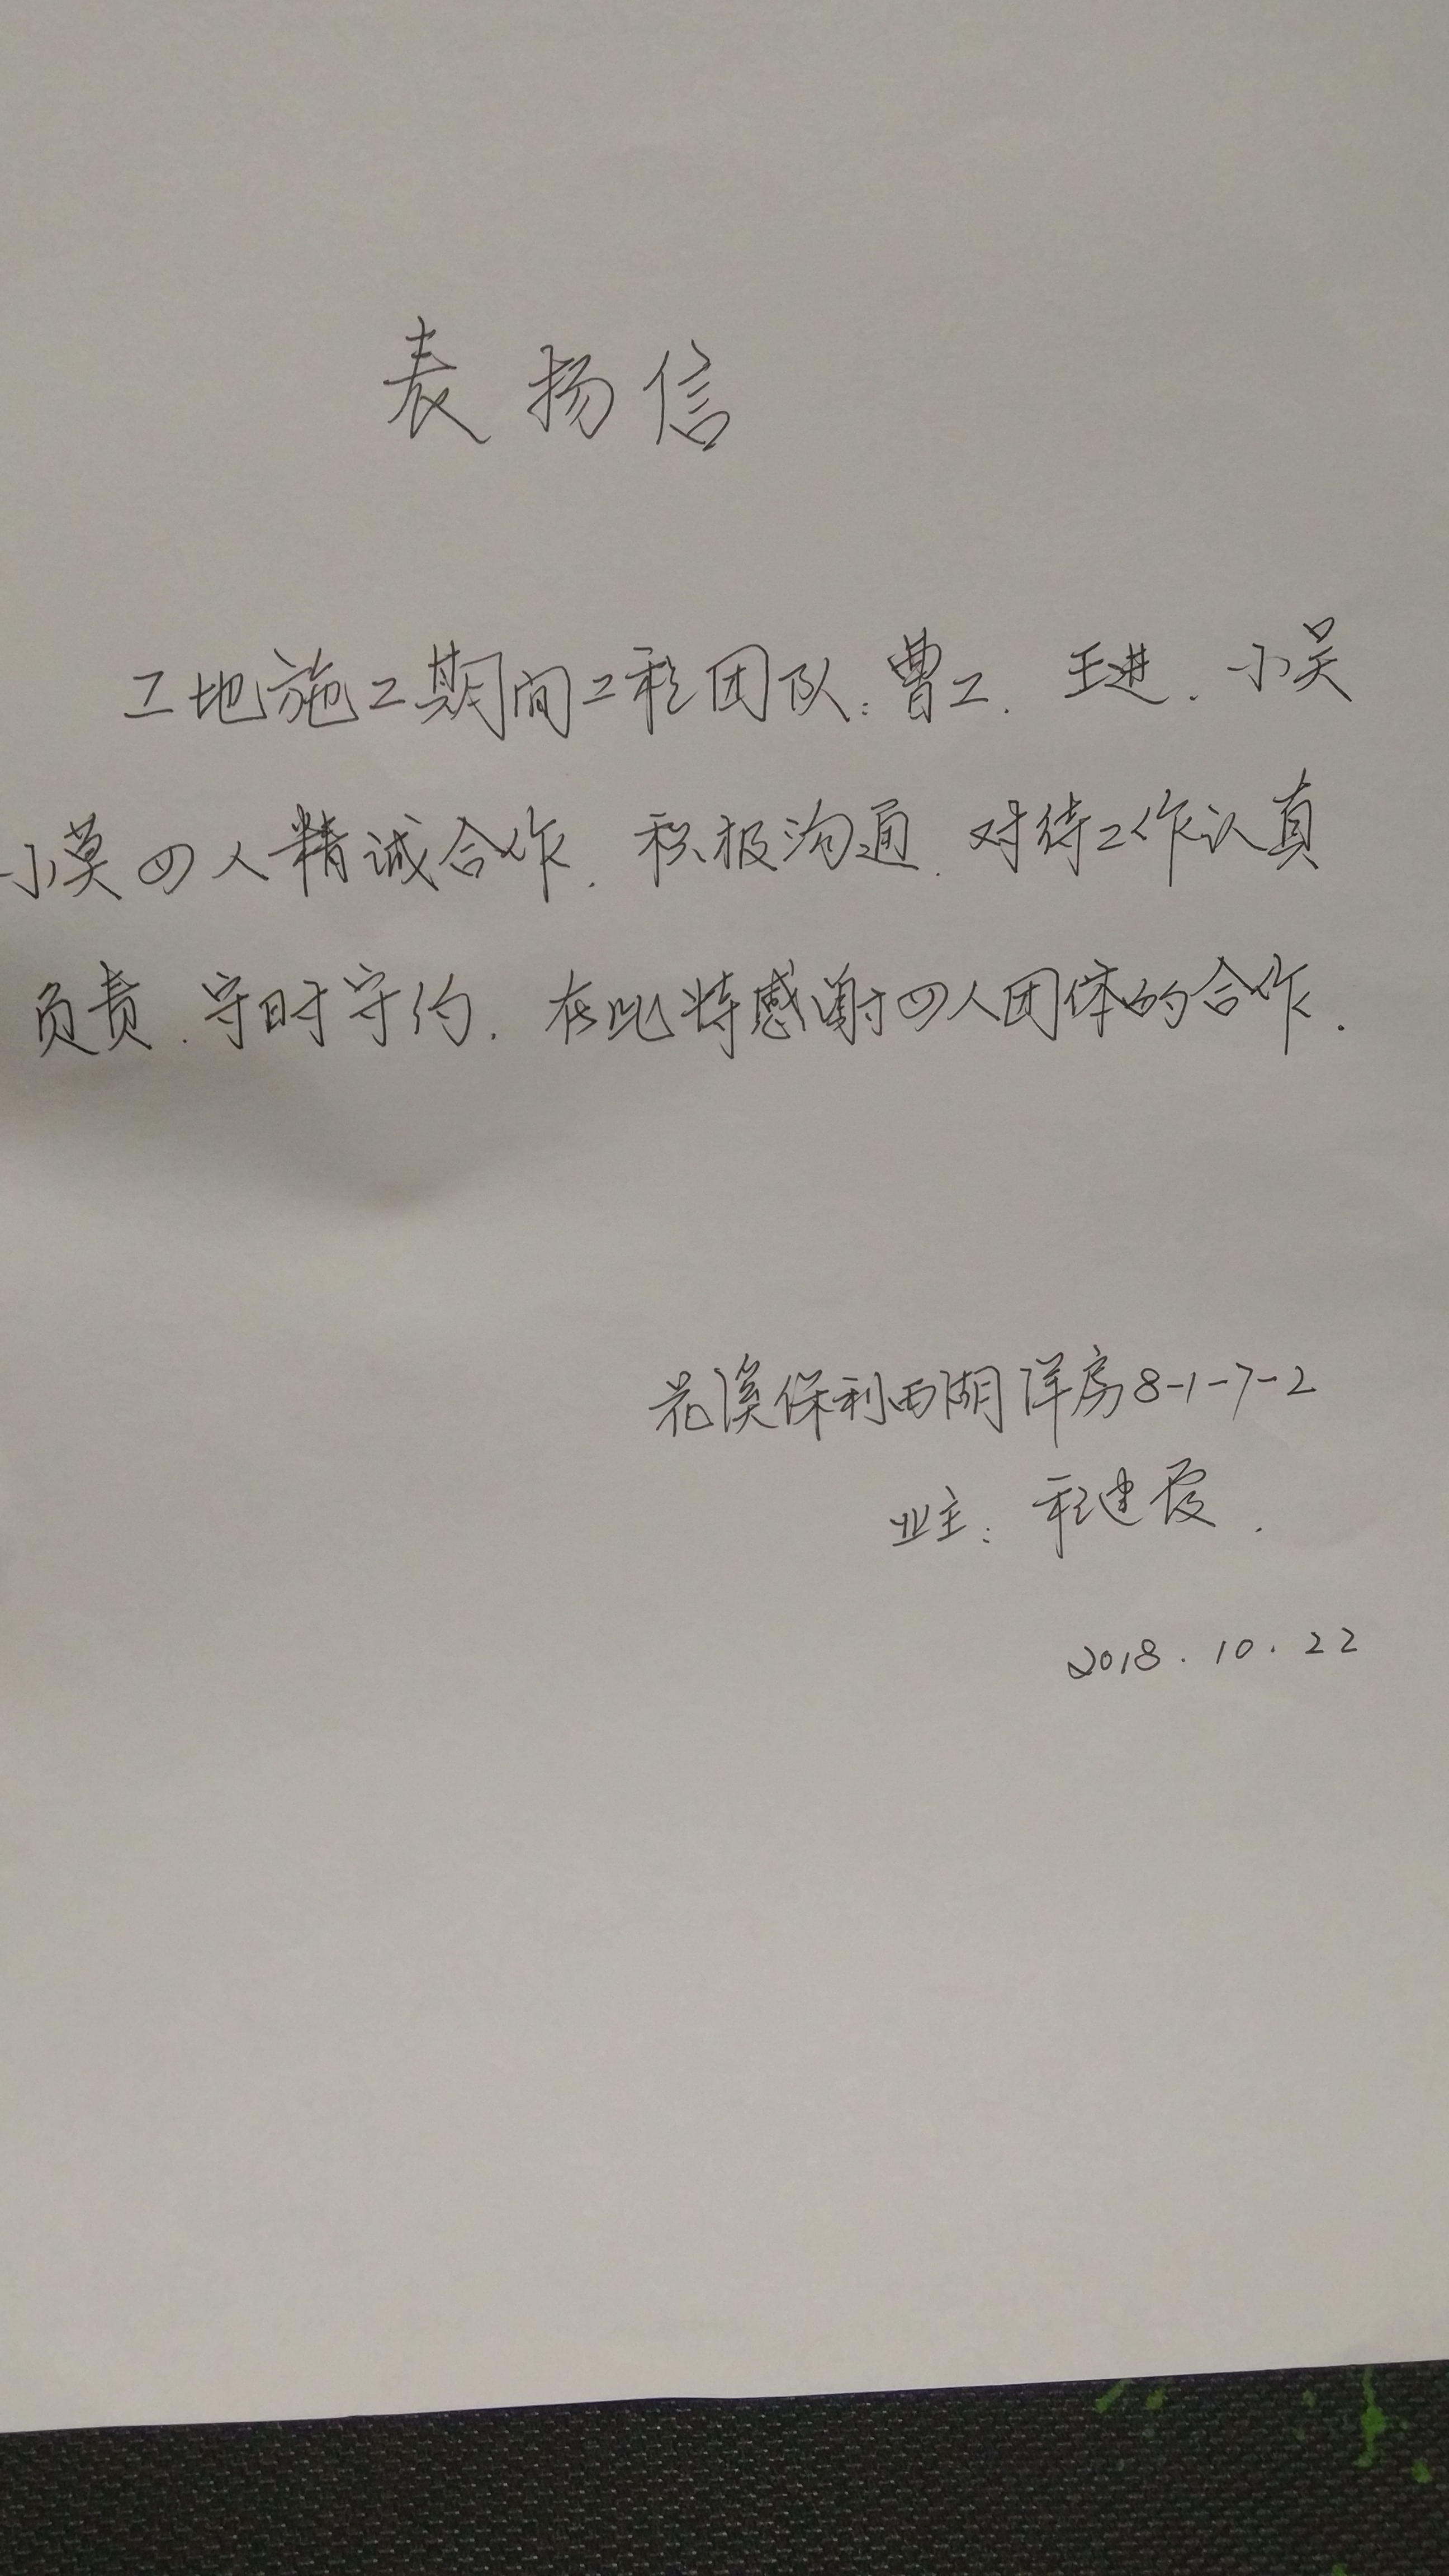 表扬信
工地施工期间工程团队:曹工. 王进. 小吴
小莫四人精诚合作. 积极沟通. 对待工作认真
负责. 守时守约. 在此特感谢四人团体的合作.
花溪保利西湖洋房8-1-7-2
业主: 程建霞.
2018.10.22